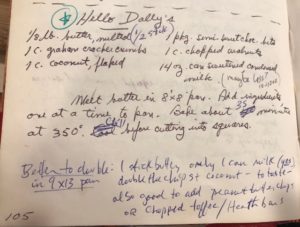 ④ Hello Dolly's
1/8 lb. butter, melted 1/2 stick 1 pkg. semi-sweet choc. bits
1 c. graham cracker crumbs 1 c. chopped walnuts
1 c. coconut, flaked 14 oz. can sweetened condensed
milk (maybe less!
Melt butter in 8"x8" pan. Add ingredients
one at a time to pan. Bake about 35 minutes
at 350°. Chill before cutting into squares.
Better to double: 1 stick butter only 1 can milk (yes)
in 9x13 pan double the chips & coconut - to taste -
also good to add peanut butter chips
or chopped toffee/Heath bars
105